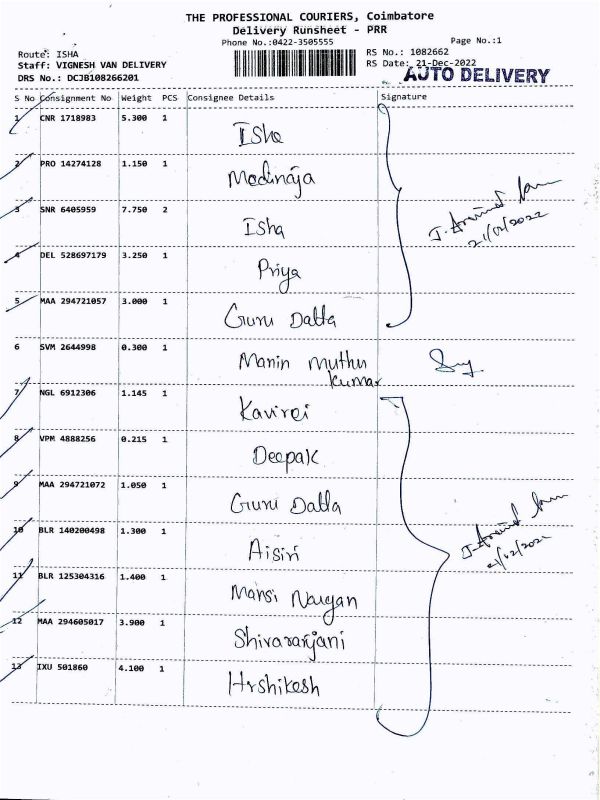 THE PROFESSIONAL COURIERS, Coimbatore
Delivery Runsheet - PRR
Phone No.:0422-3505555 Page No.:1
Route: ISHA RS No.: 1082662
Staff: VIGNESH VAN DELIVERY RS Date: 21-Dec-2022
DRS No.: DCJB108266201 AUTO DELIVERY
S No Consignment No Weight PCS Consignee Details Signature
1 CNR 1718983 5.300 1
Isha
2 PRO 14274128 1.150 1
Modinaja
3 SNR 6405959 7.750 2
Isha
J. Arvind
21/12/2022
4 DEL 528697179 3.250 1
Priya
5 MAA 294721057 3.000 1
Guru Datta
6 SVM 2644998 0.300 1
Manin Muthu
Kumar
7 NGL 6912306 1.145 1
Kavirei
8 VPM 4888256 0.215 1
Deepak
9 MAA 294721072 1.050 1
Guru Datta
10 BLR 140200498 1.300 1
Aisiri
J. Arvind
21/12/2022
11 BLR 125304316 1.400 1
Mansi Naugan
12 MAA 294605017 3.900 1
Shivaranjani
13 IXU 501860 4.100 1
Hrshikesh